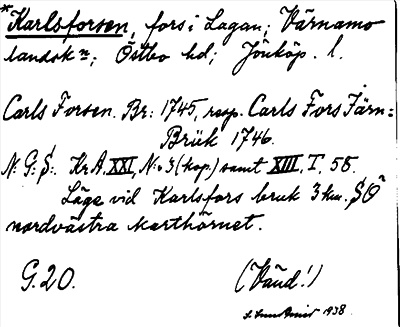 *Karlsforsen, fors i Lagan; Värnamo
landsk n; Östbo hd; Jönköp. l.
Carls Forsen. Br: 1745, resp. Carls Fors Järn=
Brük 1746.
N: G: S:. Kr. A. XXI, N:o 3 (kop.) samt XIII. T. 58.
Läge vid Karlsfors bruk 3 km. SO
nordvästra karthörnet.
G. 20. (Vänd!)
1938